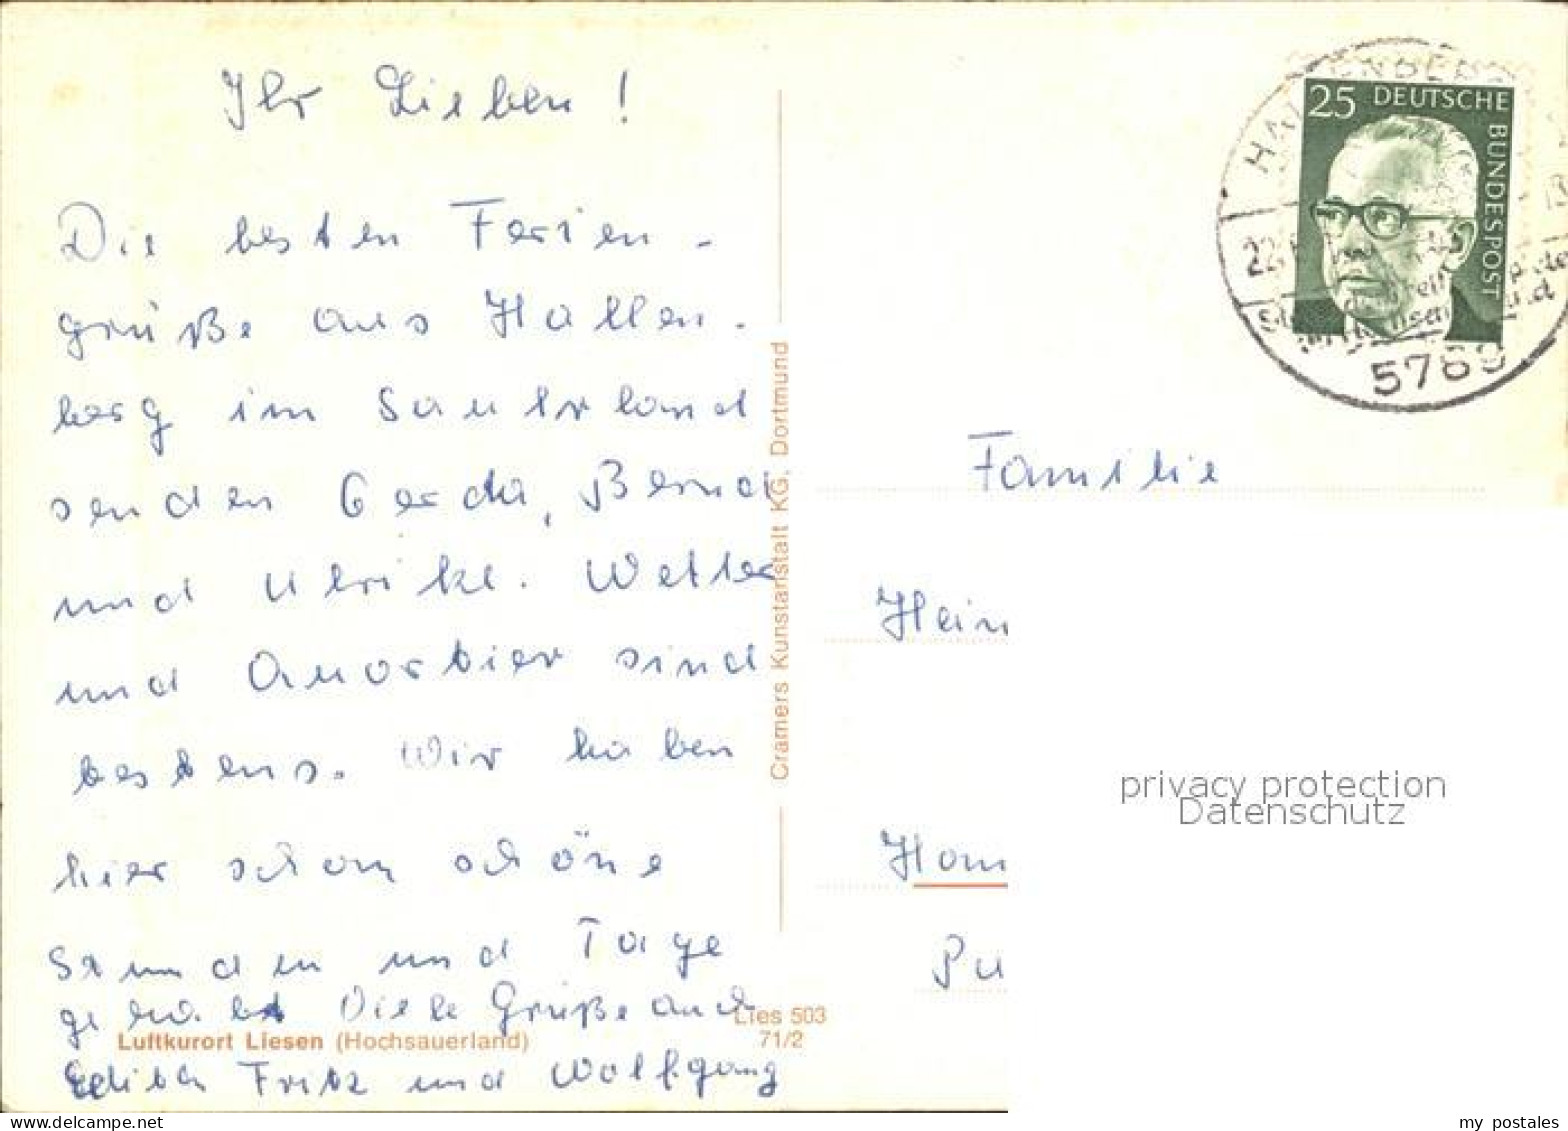 Ihr Lieben!
Die besten Ferien-
grüße aus Hallen-
berg im Sauerland
senden Gerda, Bernd
und Ulrike. Wetter
und Quartier sind
bestens. Wir haben
hier schon schöne
Stunden und Tage
gehabt Viele Grüße auch
Edith Fritz und Wolfgang
Luftkurort Liesen (Hochsauerland)
Lies 503
71/2
Cramers Kunstanstalt KG, Dortmund
25 DEUTSCHE BUNDESPOST
22
5789
Familie
Hein
Ham
Pu
privacy protection
Datenschutz
my postales